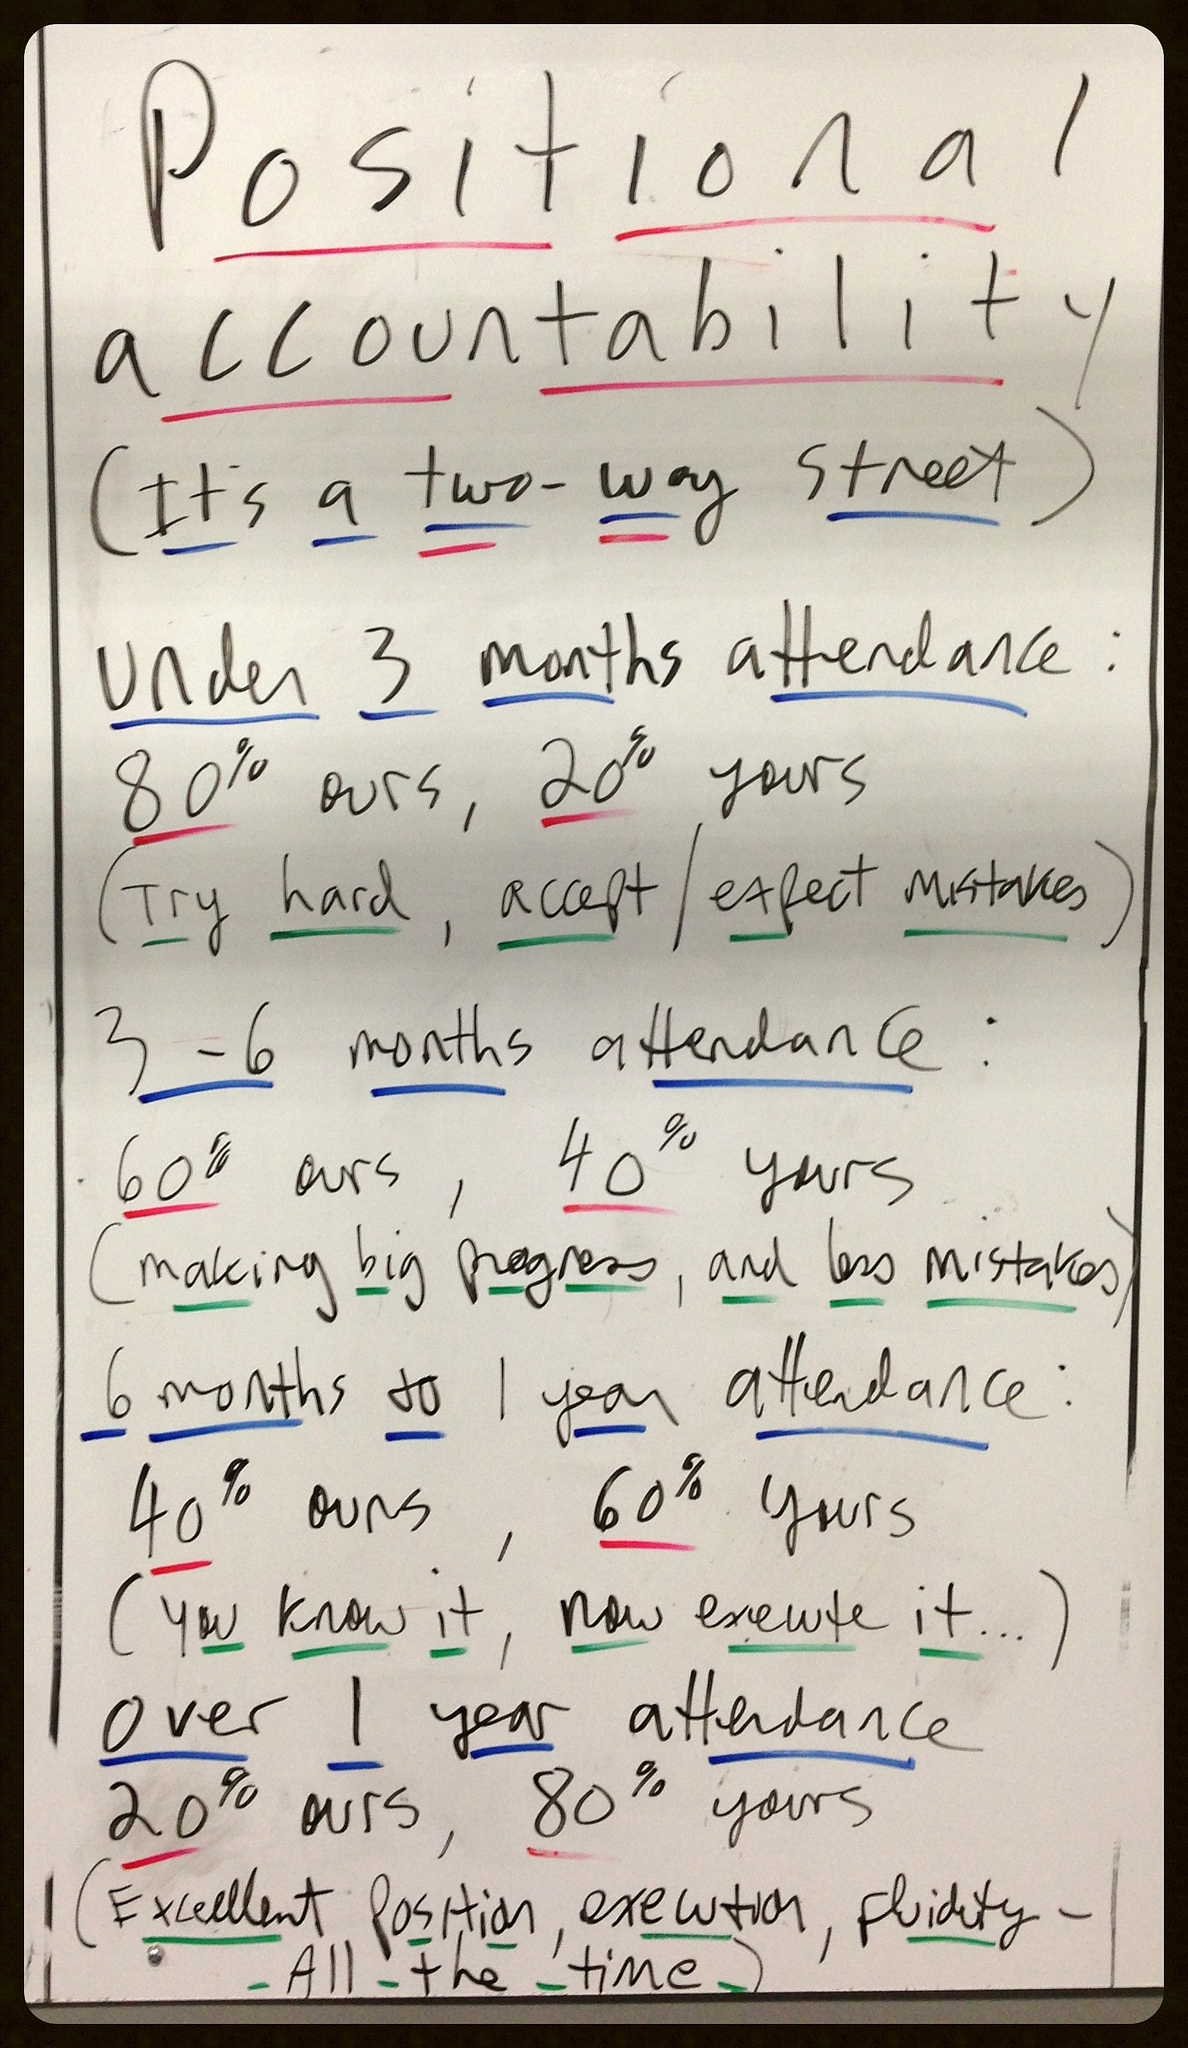 Positional
accountability
(It's a two-way street)
Under 3 months attendance:
80% ours, 20% yours
(Try hard, accept/expect mistakes)
3-6 months attendance:
60% ours, 40% yours
(making big progress, and less mistakes)
6 months to 1 year attendance:
40% ours, 60% yours
(you know it, now execute it...)
over 1 year attendance
20% ours, 80% yours
(Excellent position, execution, fluidity -
- All - the - time -)